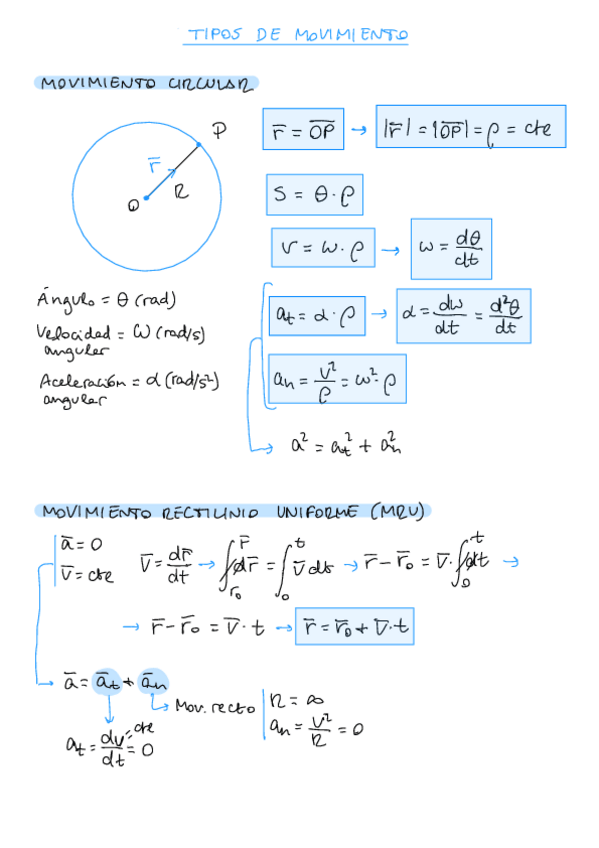 TIPOS DE MOVIMIENTO
MOVIMIENTO CIRCULAR
P
r̅
R
O
r̅ = O̅P̅ → |r̅| = |O̅P̅| = ρ = cte
S = θ · ρ
v = ω · ρ → ω = dθ/dt
Ángulo = θ (rad)
Velocidad = ω (rad/s)
angular
Aceleración = α (rad/s²)
angular
a_t = α · ρ → α = dω/dt = d²θ/dt
a_n = v²/ρ = ω² · ρ
a² = a_t² + a_n²
MOVIMIENTO RECTILINIO UNIFORME (MRU)
a̅ = 0
v̅ = cte
v̅ = dr̅/dt → ∫_{r̅₀}^{r̅} dr̅ = ∫_0^t v̅ dt → r̅ - r̅₀ = v̅ · ∫_0^t dt →
→ r̅ - r̅₀ = v̅ · t → r̅ = r̅₀ + v̅ · t
a̅ = a̅_t + a̅_n
Mov. recto
R = ∞
a_n = v²/R = 0
a_t = dv/dt = 0
= cte